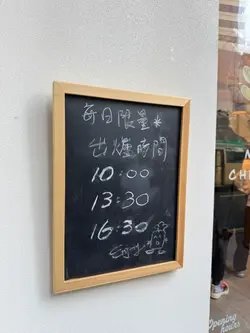 每日限量*
出爐時間
10:00
13:30
16:30
Enjoy
Opening
hours